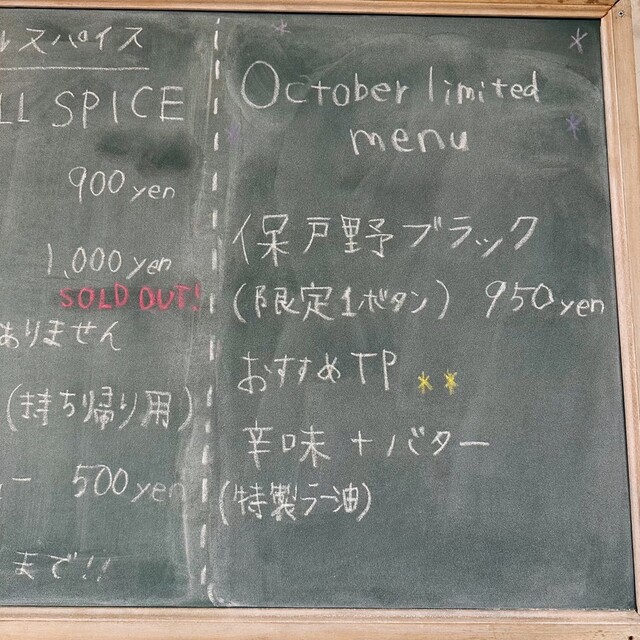 ルスパイス
LL SPICE
900yen
1,000yen
SOLD OUT!
ありません
(持ち帰り用)
ー 500yen
まで!!
October limited
menu
保戸野ブラック
(限定1ボタン) 950yen
おすすめTP
辛味+バター
(特製ラー油)